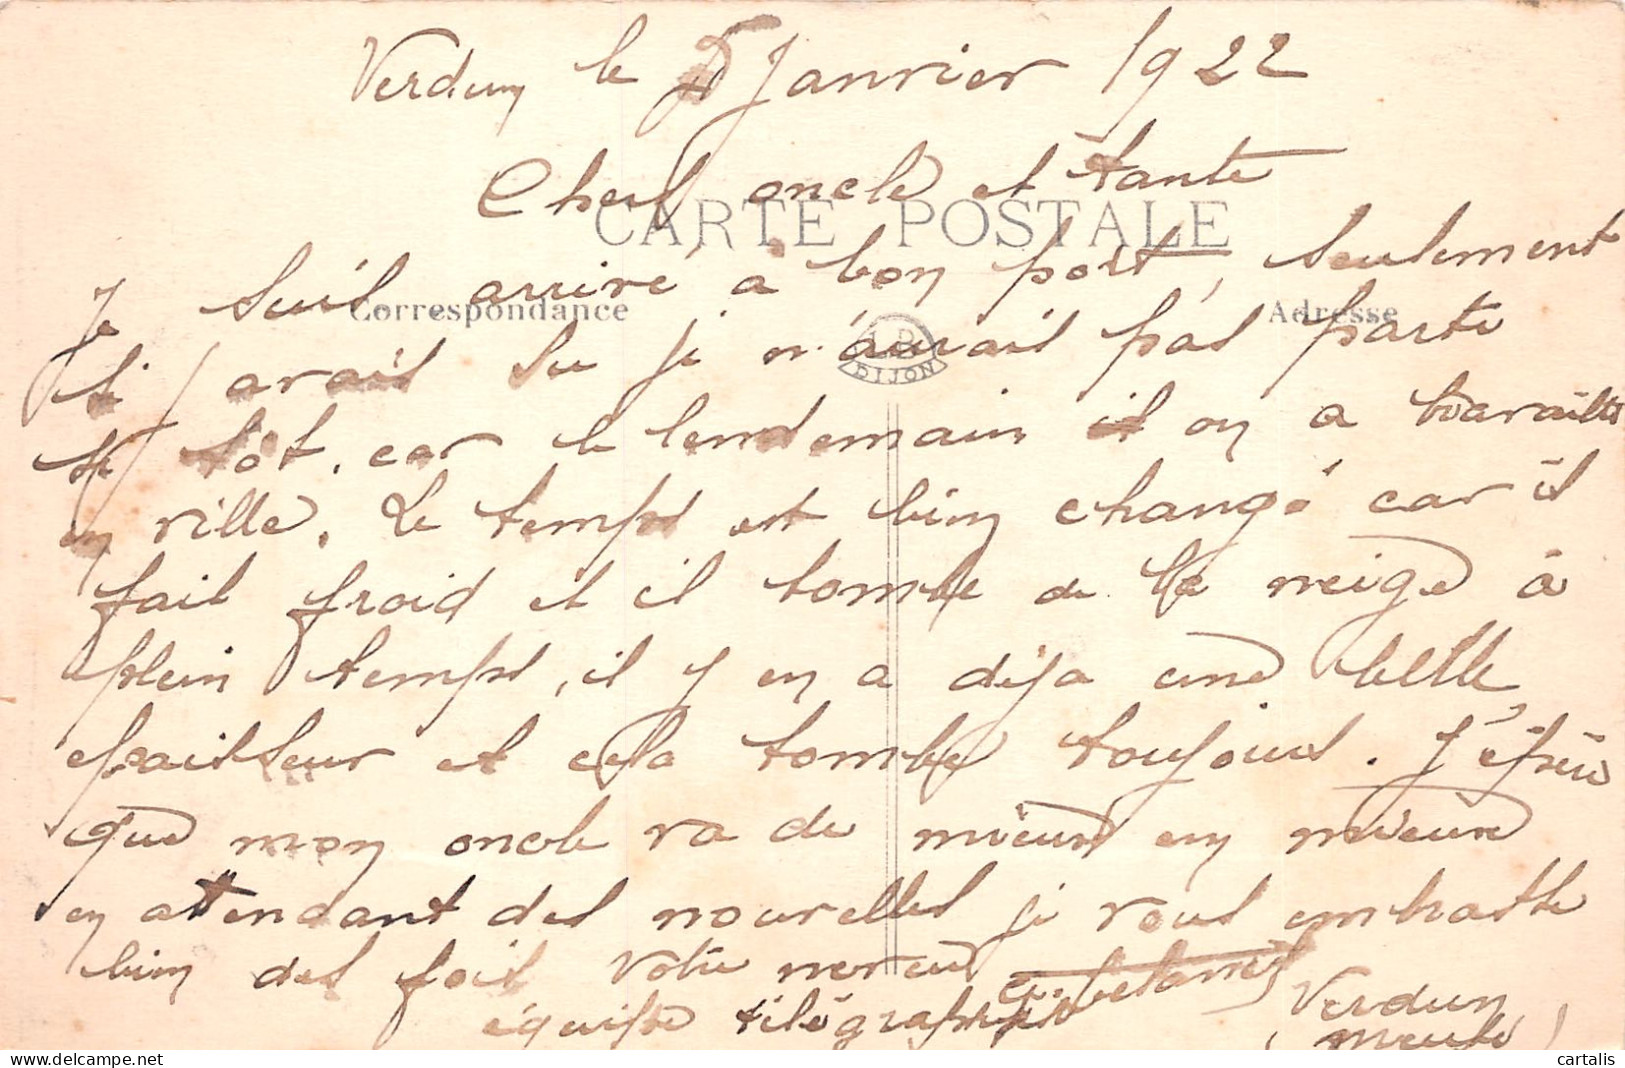 Verdun le 5 Janvier 1922
Chers oncle et tante
CARTE POSTALE
Je suis arrivé à bon port, seulement
Correspondance
Adresse
si j'avais su je n'aurais pas parti
LB
DIJON
si tôt, car le lendemain il on a travaillé
en ville. Le temps est bien changé car il
fait froid et il tombe de la neige à
plein temps, il y en a déja une belle
épaisseur et cela tombe toujours. J'éspère
que mon oncle va de mieux en mieux
en attendant des nouvelles je vous embrasse
bien des fois votre neveu
équipe télégraphiste Verdun
(Meuse)
cartalis